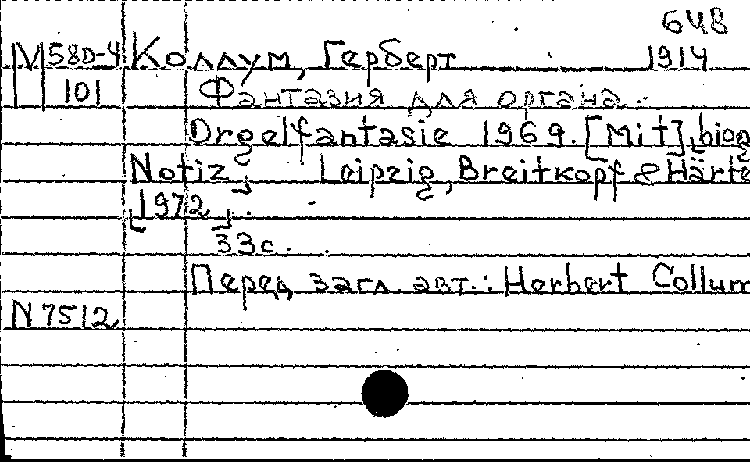 648
M 58D-4 Коллум, Герберт 1914
101 Фантазия для органа.
Orgelfantasie 1969. [Mit] biog
Notiz Leipzig, Breitkopf & Härte
[1972].
33с.
Перед загл. авт.: Herbert Collum
N 7512